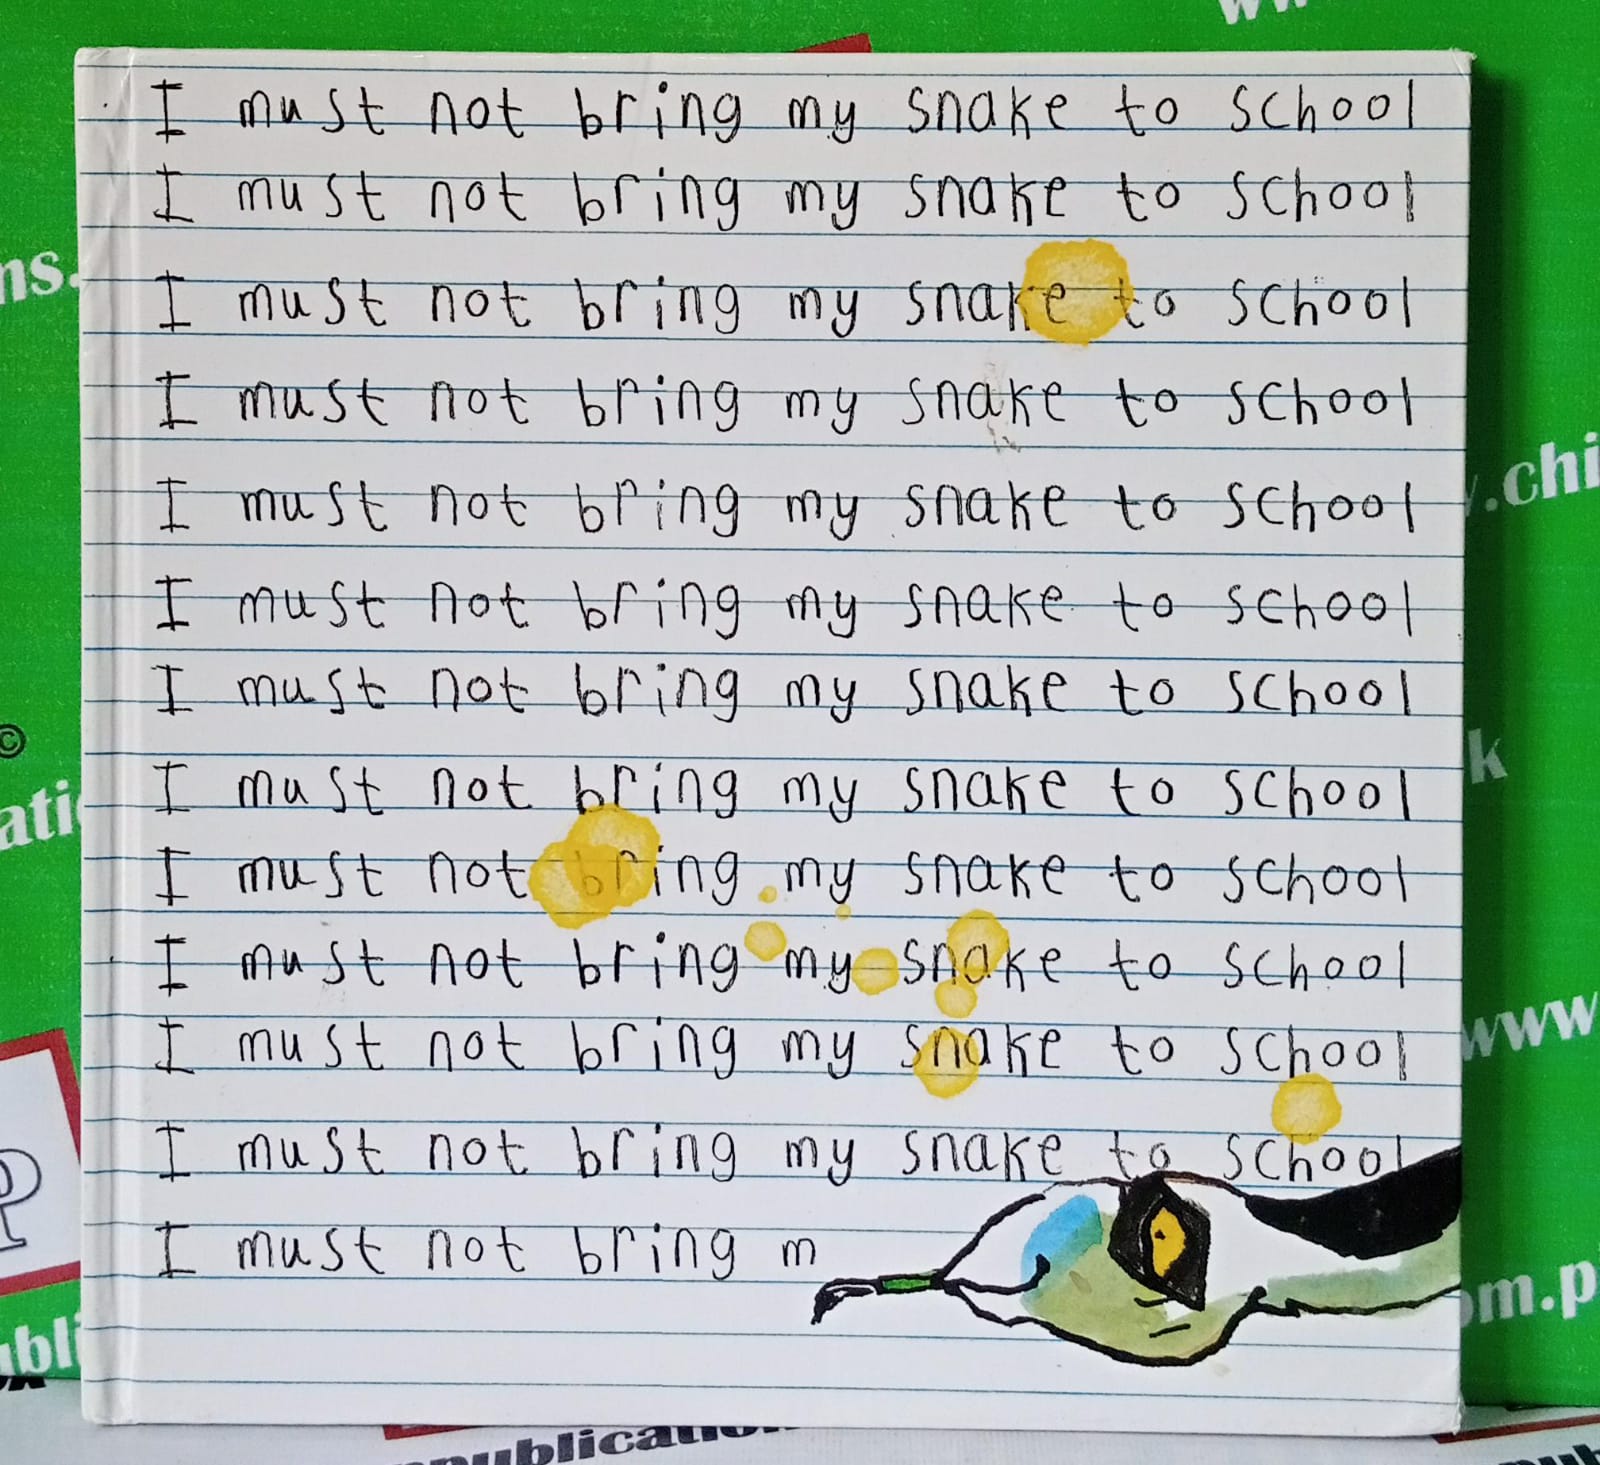 I must not bring my snake to school
I must not bring my snake to school
I must not bring my snake to school
I must not bring my snake to school
I must not bring my snake to school
I must not bring my snake to school
I must not bring my snake to school
I must not bring my snake to school
I must not bring my snake to school
I must not bring my snake to school
I must not bring my snake to school
I must not bring my snake to school
I must not bring m